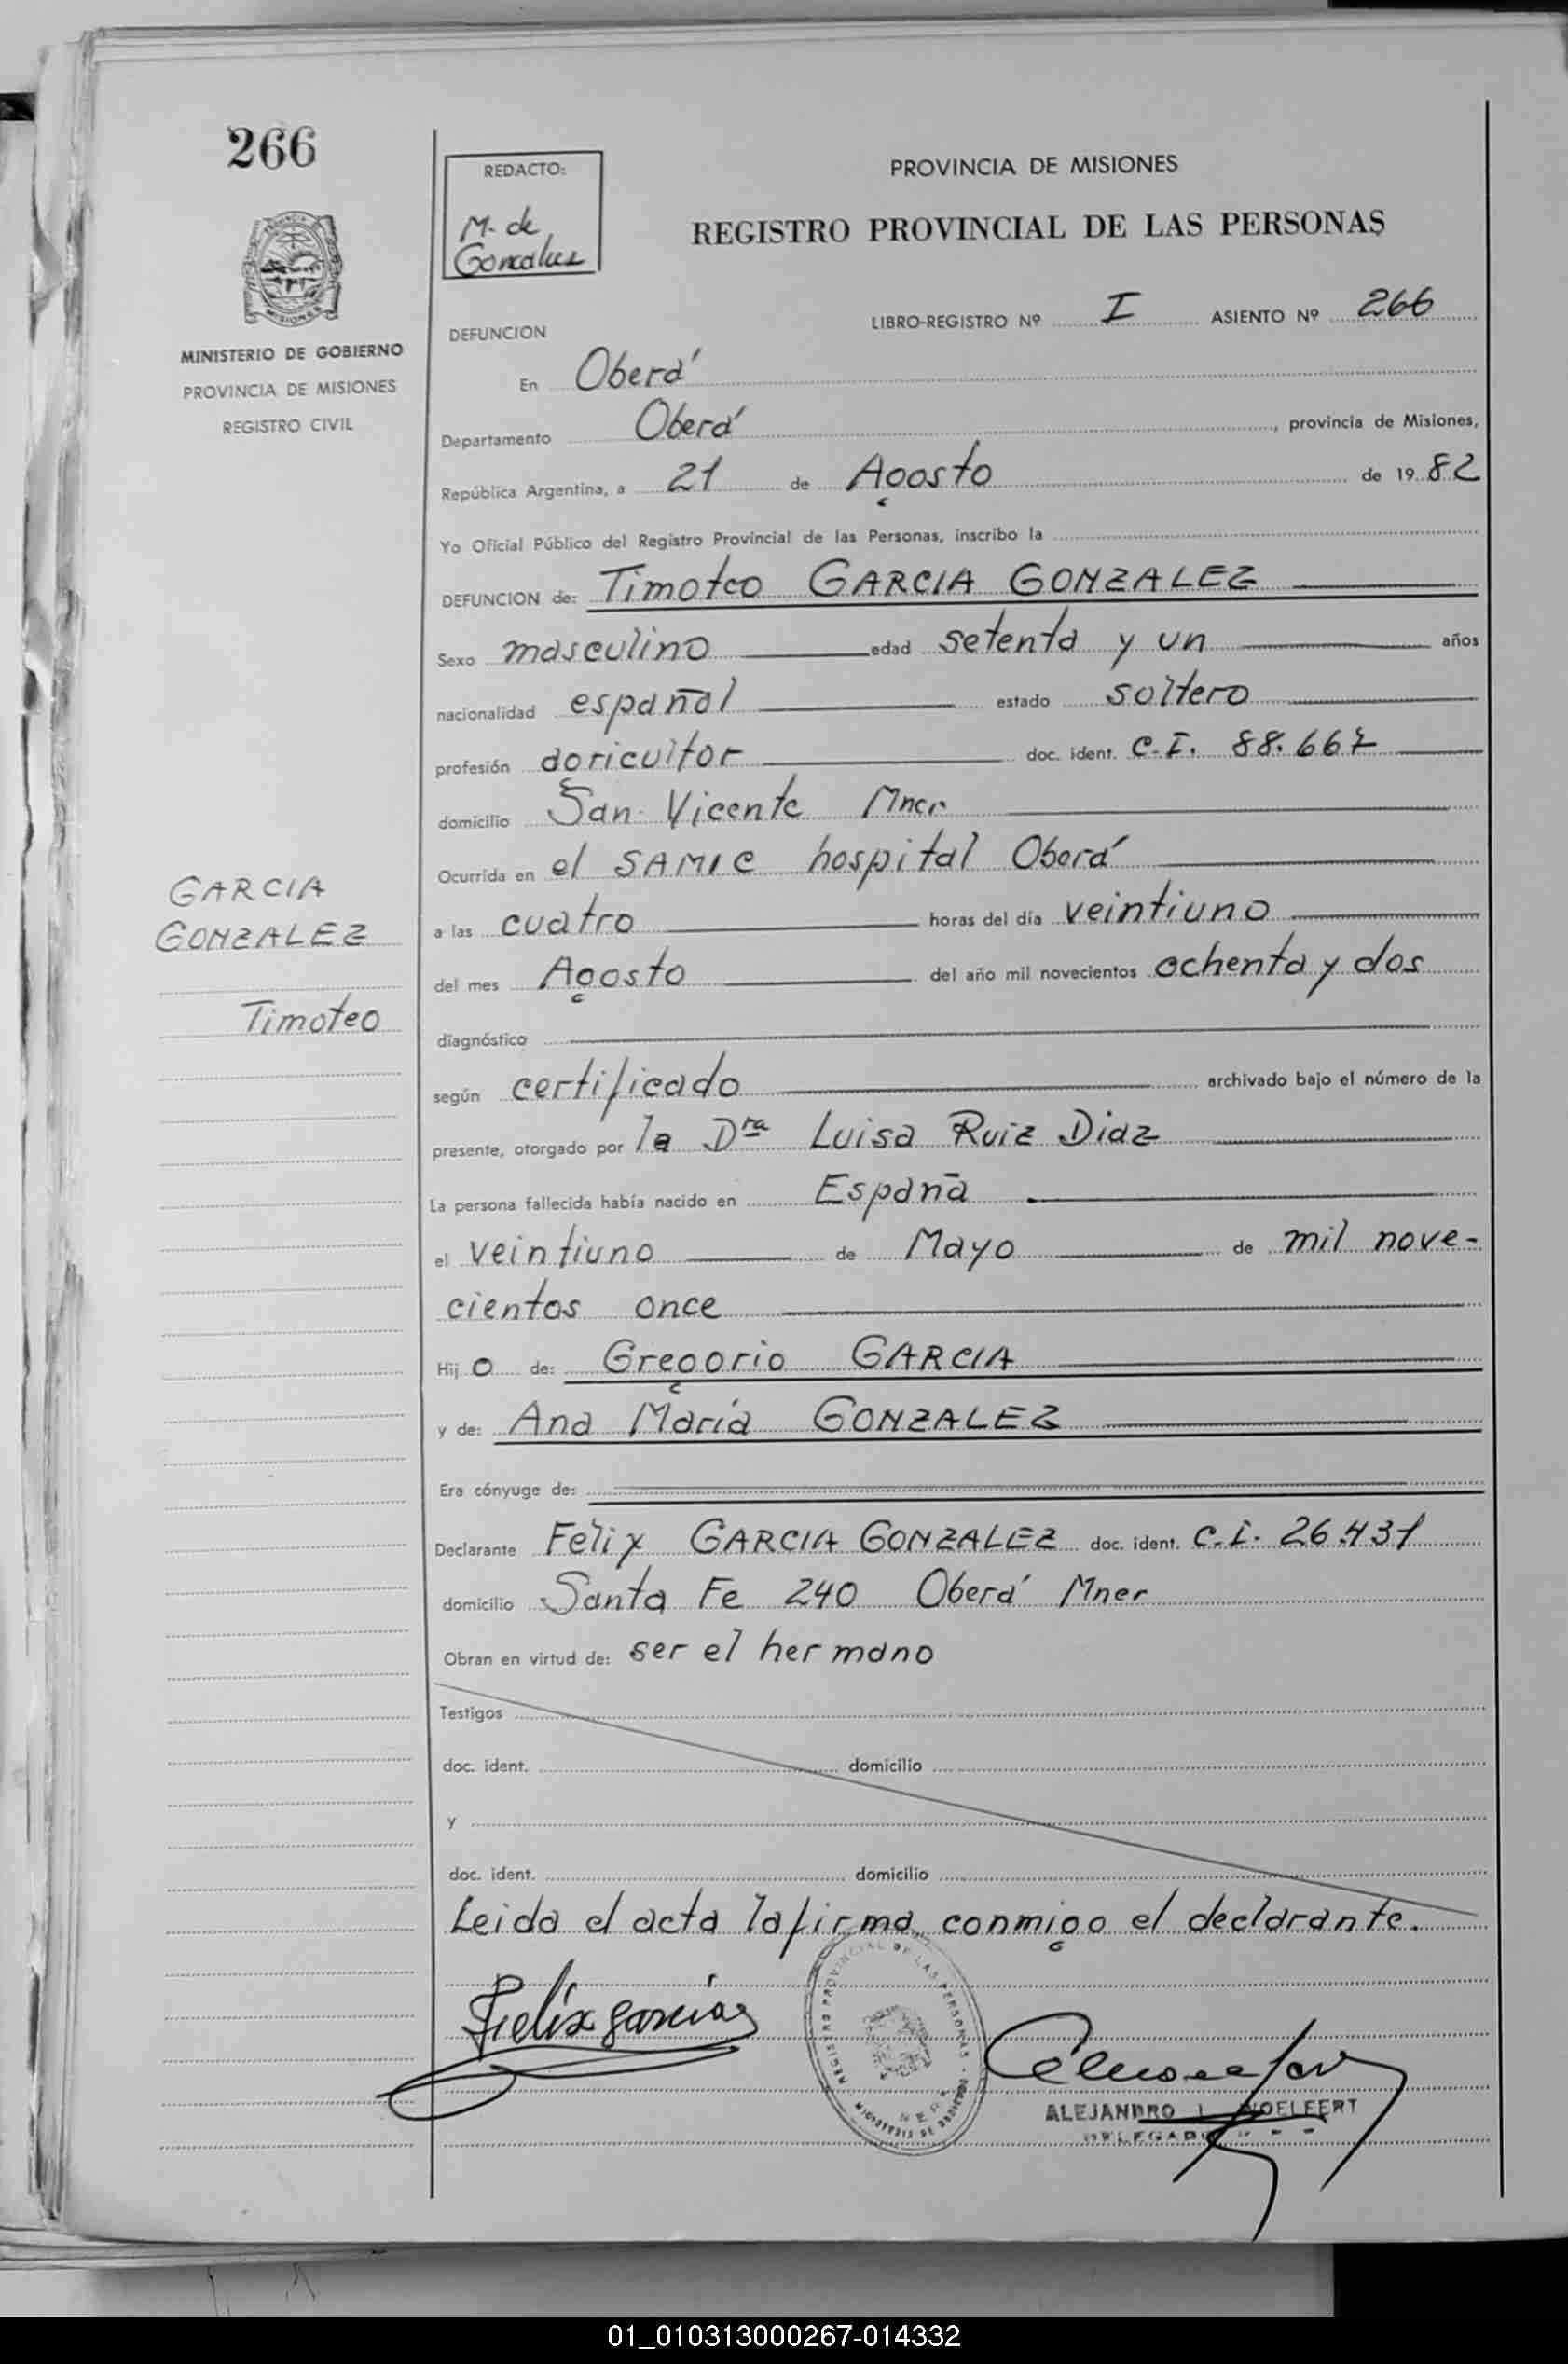 266
REDACTO:
M. de
Goncalvez
PROVINCIA DE MISIONES
REGISTRO PROVINCIAL DE LAS PERSONAS
MINISTERIO DE GOBIERNO
PROVINCIA DE MISIONES
REGISTRO CIVIL
LIBRO-REGISTRO Nº I ASIENTO Nº 266
DEFUNCION
En Oberá
Departamento Oberá, provincia de Misiones,
República Argentina, a 21 de Agosto de 1982
Yo Oficial Público del Registro Provincial de las Personas, inscribo la
DEFUNCION de: Timoteo GARCIA GONZALEZ
Sexo masculino edad setenta y un años
nacionalidad español estado soltero
profesión agricultor doc. ident. C.I. 88.667
domicilio San Vicente Mnes
Ocurrida en el SAMIC hospital Oberá
a las cuatro horas del día veintiuno
del mes Agosto del año mil novecientos ochenta y dos
GARCIA
GONZALEZ
Timoteo
diagnóstico
según certificado archivado bajo el número de la
presente, otorgado por la Dra Luisa Ruiz Diaz
La persona fallecida había nacido en España
el veintiuno de Mayo de mil nove-
cientos once
Hijo de: Gregorio GARCIA
y de: Ana María GONZALEZ
Era cónyuge de:
Declarante Felix GARCIA GONZALEZ doc. ident. C.I. 26.437
domicilio Santa Fe 240 Oberá Mnes
Obran en virtud de: ser el hermano
Testigos
doc. ident. domicilio
y
doc. ident. domicilio
Leida el acta la firma conmigo el declarante.
Felix garcias
REGISTRO PROVINCIAL DE LAS PERSONAS
ALEJANDRO
DELEGADO
01_010313000267-014332